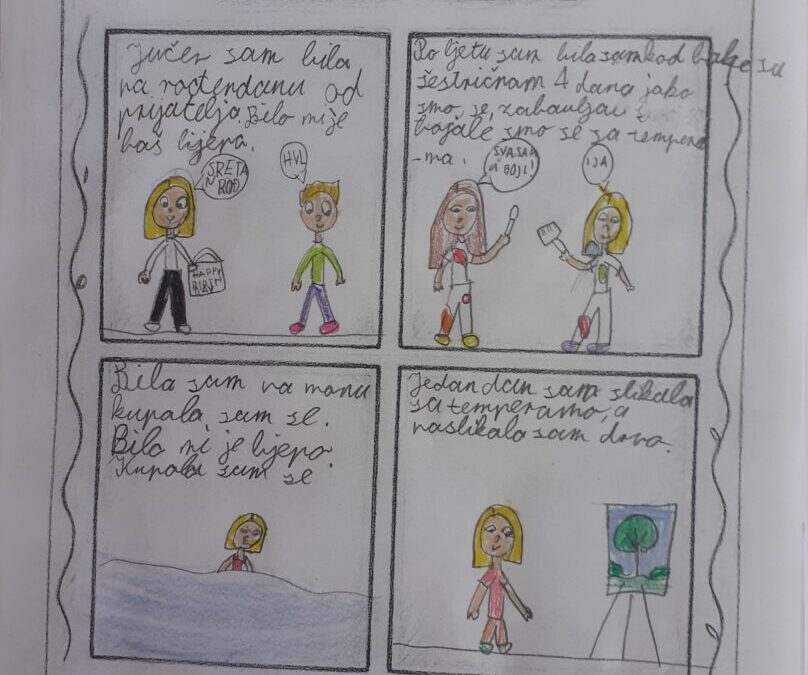 Jučer sam bila
na rođendanu od
prijatelja. Bilo mi je
baš lijepo.
SRETA
N ROĐ
HVL
HAPPY
BIRTH
Po ljetu sam bila sam kod bake sa
sestričnam 4 dana jako
smo se, zabavljale
bojale smo se sa tempera
-ma.
SVA SAM
U BOJI!
I JA
Bila sam na moru
kupala sam se.
Bilo mi je lijepo.
Kupala sam se
Jedan dan sam slikala
sa temperamo, a
naslikala sam drvo.